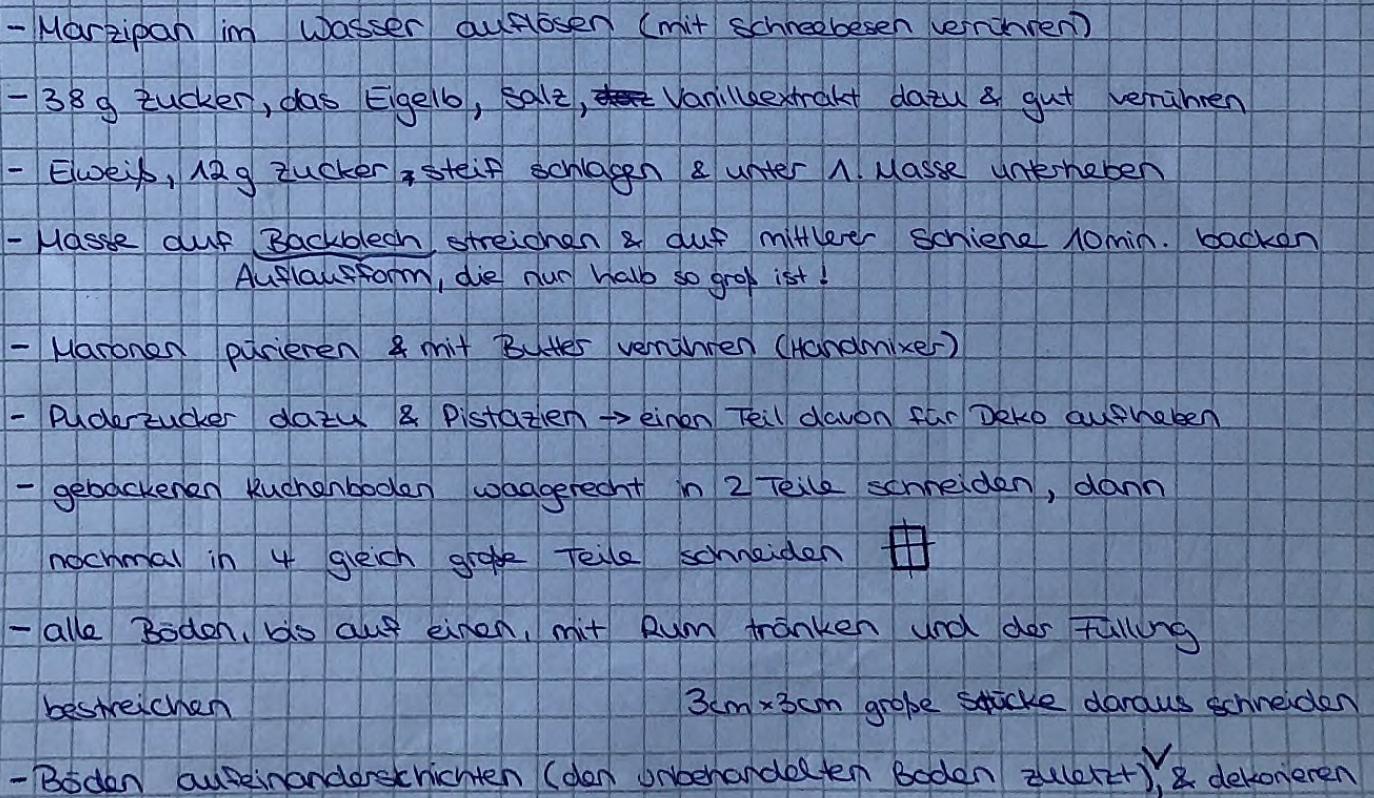 - Marzipan im Wasser auflösen (mit Schneebesen verrühren)
- 38 g Zucker, das Eigelb, Salz, Vanilleextrakt dazu & gut verrühren
- Eiweiß, 12 g Zucker, steif schlagen & unter 1. Masse unterheben
- Masse auf Backblech streichen & auf mittlerer Schiene 10 min. backen
Auflaufform, die nur halb so groß ist!
- Maronen pürieren & mit Butter verrühren (Handmixer)
- Puderzucker dazu & Pistazien → einen Teil davon für Deko aufheben
- gebackenen Kuchenboden waagerecht in 2 Teile schneiden, dann
nochmal in 4 gleich große Teile schneiden
- alle Böden, bis auf einen, mit Rum tränken und der Füllung
bestreichen
3cm×3cm große Stücke daraus schneiden
- Böden aufeinanderschichten (den unbehandelten Boden zuletzt), & dekorieren